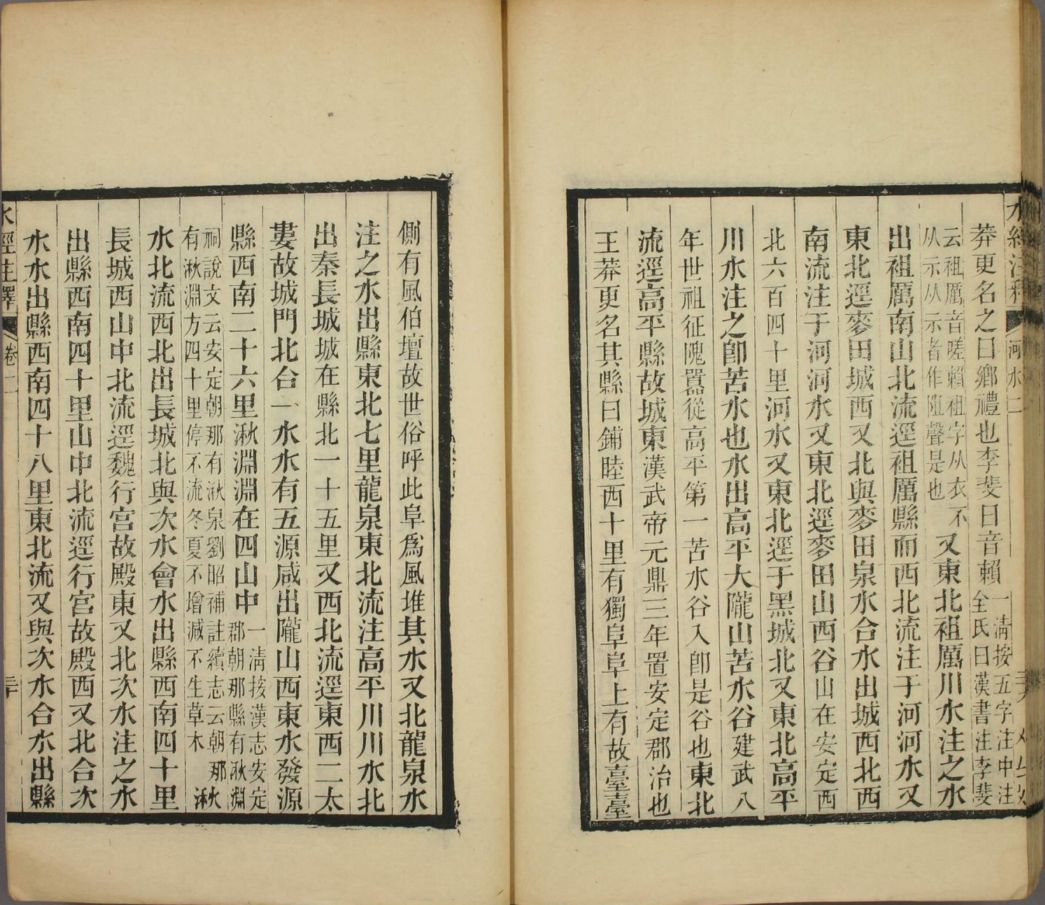 水經注釋
河水二
莽更名之曰鄉禮也李斐曰音賴一清按五字注中注全氏曰漢書注李斐
云祖厲音嗟賴祖字从衣不从示从示者作阻聲是也又東北祖厲川水注之水
出祖厲南山北流逕祖厲縣而西北流注于河河水又
東北逕麥田城西又北與麥田泉水合水出城西北西
南流注于河河水又東北逕麥田山西谷山在安定西
北六百四十里河水又東北逕于黑城北又東北高平
川水注之卽苦水也水出高平大隴山苦水谷建武八
年世祖征隗囂從高平第一苦水谷入卽是谷也東北
流逕高平縣故城東漢武帝元鼎三年置安定郡治也
王莽更名其縣曰鋪睦西十里有獨阜阜上有故臺臺
側有風伯壇故世俗呼此阜爲風堆其水又北龍泉水
注之水出縣東北七里龍泉東北流注高平川川水北
出秦長城城在縣北一十五里又西北流逕東西二太
婁故城門北合一水水有五源咸出隴山西東水發源
縣西南二十六里湫淵淵在四山中一清按漢志安定郡朝那縣有湫淵
祠說文云安定朝那有湫泉劉昭補註續志云朝那有湫淵方四十里停不流冬夏不增減不生草木湫
水北流西北出長城北與次水會水出縣西南四十里
長城西山中北流逕魏行宮故殿東又北次水注之水
出縣西南四十里山中北流逕行宮故殿西又北合次
水水出縣西南四十八里東北流又與次水合水出縣
水經注釋
卷二